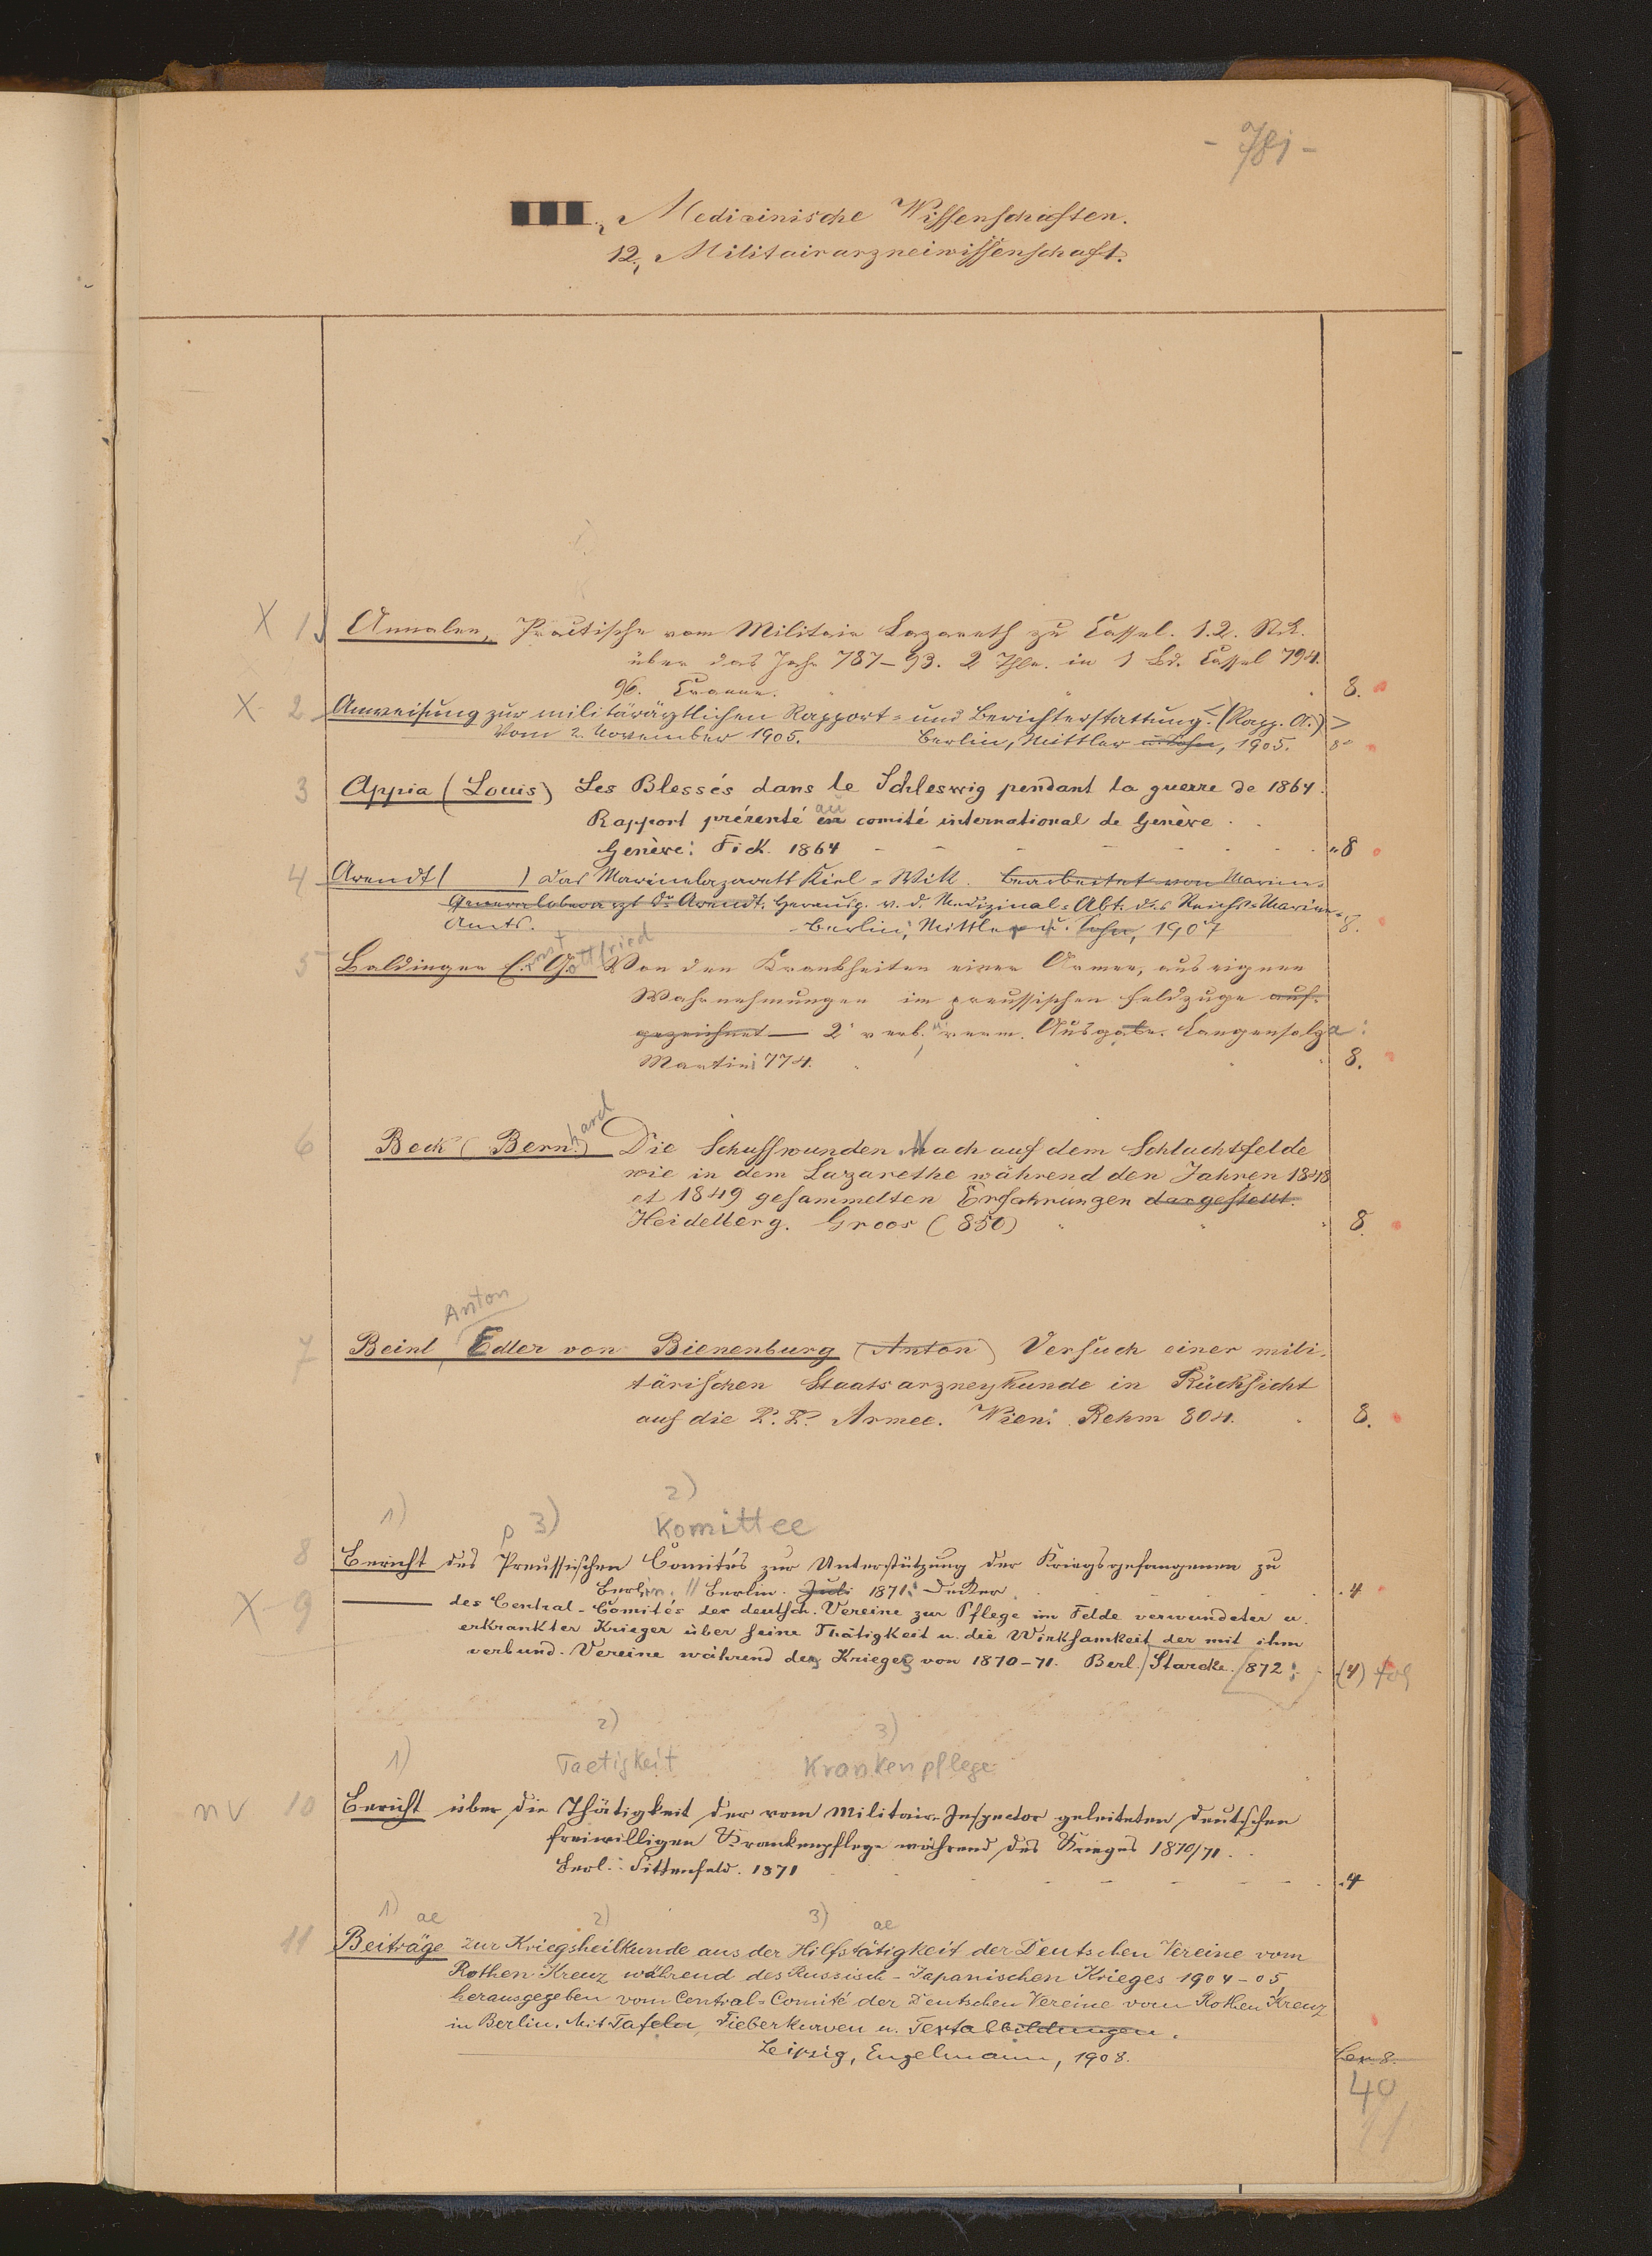 - 781 -
III., Medicinische Wissenschaften.
12., Militairarzneiwissenschaft.
X 1 Annalen, Practische vom Militair Lazareth zu Cassel. 1.2. Stck.
über das Jahr 787-93. 2 Thle. in 1 Bd. Cassel 794.
96. 8.
X 2 Anweisung zur militärärztlichen Rapport- und Berichterstattung. (Rapp. A.)
Vom 2. November 1905. Berlin, Mittler u. Sohn, 1905. 8°
3 Appia (Louis) Les Blessés dans le Schleswig pendant la guerre de 1864.
Rapport présenté au comité international de Genève.
Genève: Fick. 1864 - - - - - - - 8
4 Arendt ( ) Das Marinelazarett Kiel-Wik. Bearbeitet von Marine-
Generaloberarzt Dr Arendt. Herausg. v. d. Medizinal-Abt. des Reichs-Marine-
Amts. Berlin, Mittler u. Sohn, 1907 8.
5 Baldinger Ernst Gottfried Von den Krankheiten einer Armee, aus eignen
Wahrnehmungen im preussischen Feldzuge auf-
gezeichnet 2' verb. u verm. Ausgabe. Langensalza:
Martini 774. 8.
6 Beck (Bernhard) Die Schusswunden Nach auf dem Schlachtfelde
wie in dem Lazarethe während den Jahren 1848
et 1849 gesammelten Erfahrungen dargestellt.
Heidelberg. Groos (850) 8.
Anton
7 Beinl, Edler von Bienenburg (Anton) Versuch einer mili-
tärischen Staatsarzneykunde in Rücksicht
auf die K. K. Armee. Wien: Rehm 804. 8.
1) p 3) 2) Komittee
8 Bericht des Preussischen Comités zur Unterstützung der Kriegsgefangenen zu
Berlin. // Berlin. Juli 1871: Decker. 4
X 9 —— des Central-Comités der deutsch. Vereine zur Pflege im Felde verwundeter u.
erkrankter Krieger über seine Thätigkeit u. die Wirksamkeit der mit ihm
verbund. Vereine während des Krieges von 1870-71. Berl. Starcke. 872: (4) fol
1) 2) Taetigkeit 3) Krankenpflege
nv 10 Bericht über die Thätigkeit der vom Militair-Inspector geleiteten deutschen
freiwilligen Krankenpflege während des Krieges 1870/71.
Berl.: Sittenfeld. 1871 - - - - - 4
1) ae 2) 3) ae
11 Beiträge zur Kriegsheilkunde aus der Hilfstätigkeit der Deutschen Vereine vom
Rothen Kreuz während des Russisch-Japanischen Krieges 1904-05
herausgegeben vom Central-Comité der Deutschen Vereine vom Rothen Kreuz
in Berlin. Mit Tafeln, Fieberkurven u. Textabbildungen.
Leipzig, Engelmann, 1908. Lex. 8.
40
11